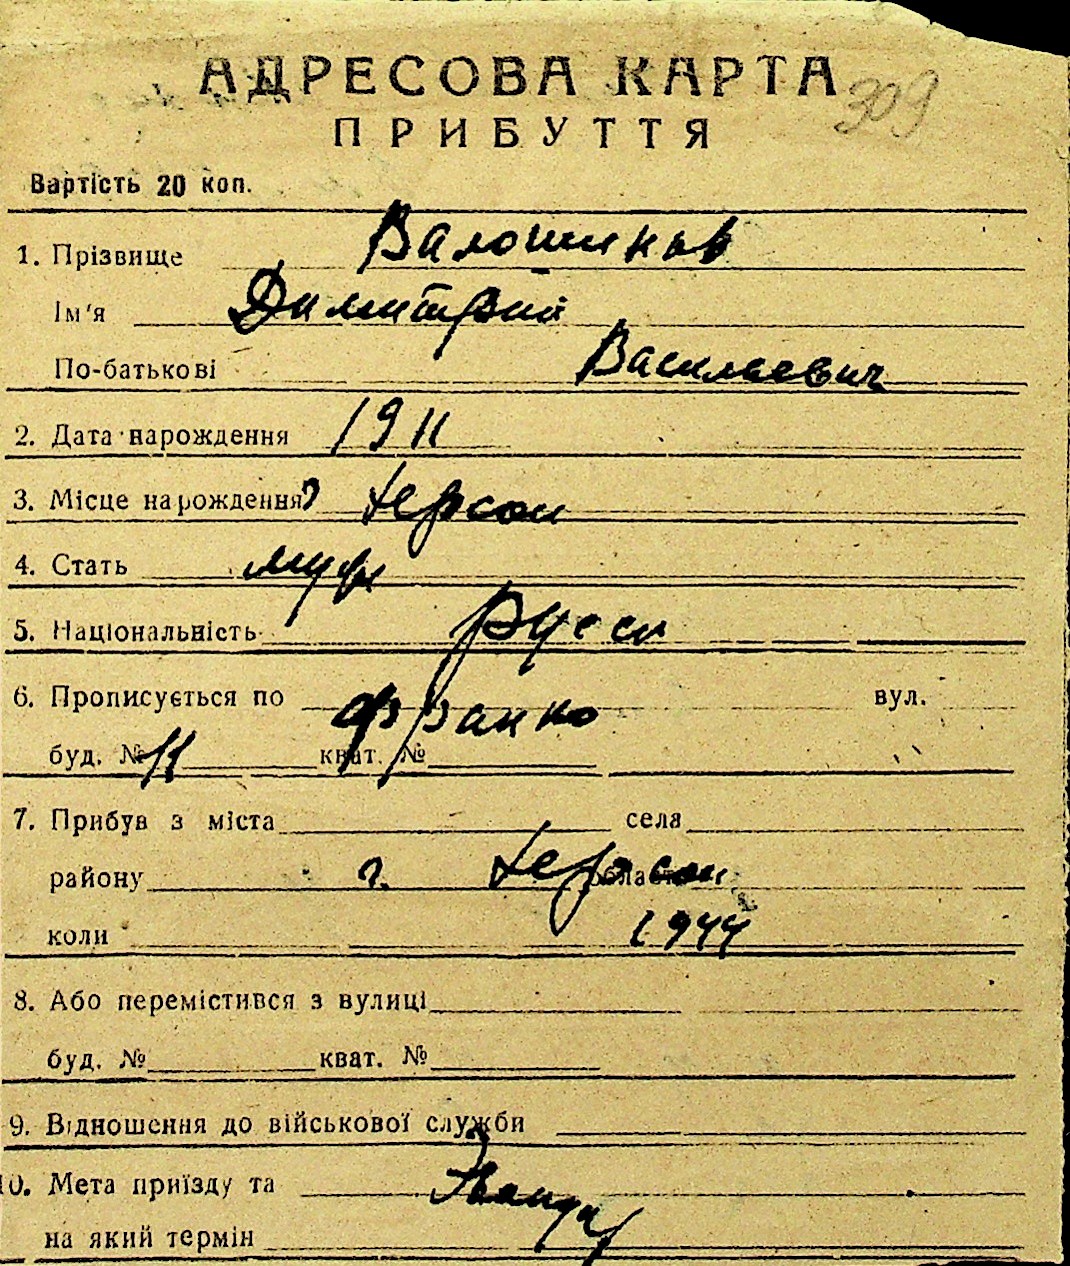 АДРЕСОВА КАРТА 309
ПРИБУТТЯ
Вартість 20 коп.
1. Прізвище Валошинов
Ім'я Димитрий
По-батькові Василиевич
2. Дата народження 1911
3. Місце народження г Херсон
4. Стать муж
5. Національність Русск
6. Прописується по Франко вул.
буд. № 11 кват. №
7. Прибув з міста села
району г. Херсон області
коли 1944
8. Або перемістився з вулиці
буд. № кват. №
9. Відношення до військової служби
10. Мета приїзду та
на який термін